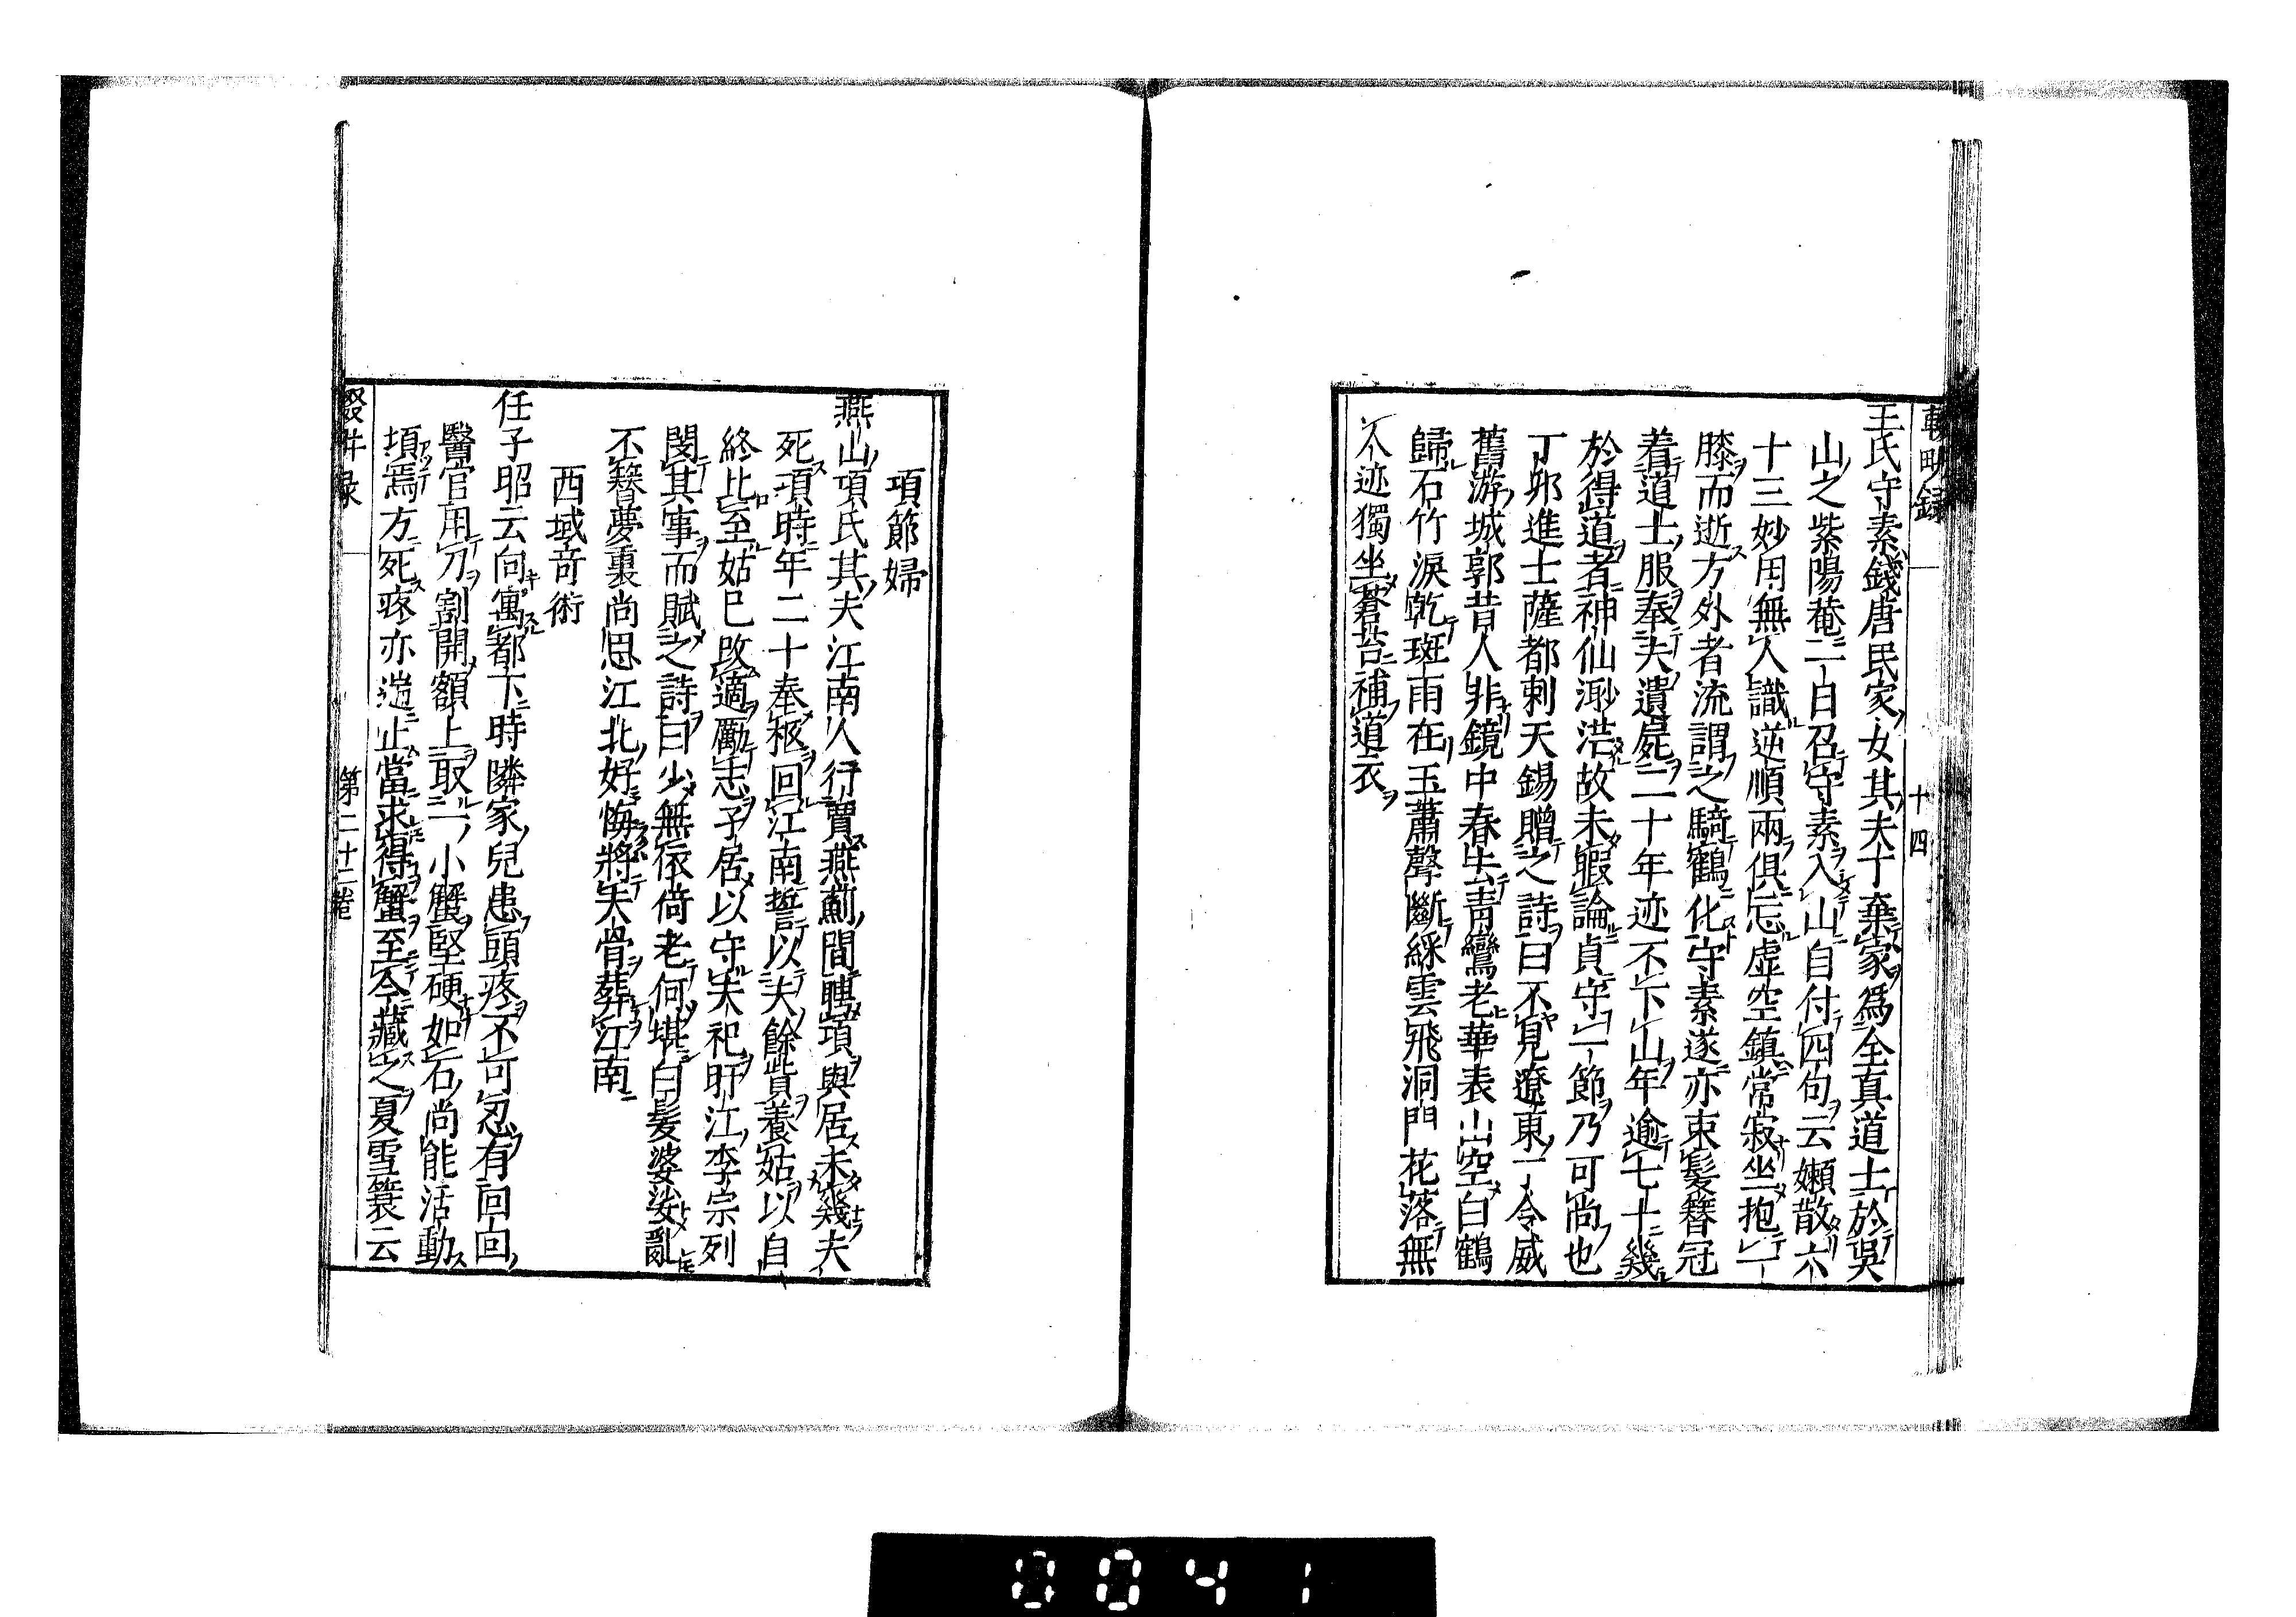 輟畊録
十四
王氏守素錢唐民家女其夫丁棄家爲全真道士於吳
山之紫陽菴一日召守素入山自付四句云嬾散六
十三妙用無人識逆順兩俱忘虛空鎮常寂坐抱一
膝而逝方外者流謂之騎鶴化守素遂亦束髮簪冠
着道士服奉夫遺屍二十年迹不下山年逾七十幾
於得道者神仙渺茫故未暇論貞守一節乃可尚也
丁夘進士薩都剌天錫贈之詩曰不見遼東丁令威
舊游城郭昔人非鏡中春去青鸞老華表山空白鶴
歸石竹淚乾斑雨在玉蕭聲斷綵雲飛洞門花落無
人迹獨坐蒼苔補道衣
項節婦
燕山項氏其夫江南人行賈燕薊間聘項與居未幾夫
死項時年二十奉柩回江南誓以夫餘貲養姑以自
終比至姑已改適勵志孑居以守夫祀盱江李宗列
閔其事而賦之詩曰少無依倚老何堪白髪婆娑亂
不簪夢裏尚思江北好悔將夫骨葬江南
西域奇術
任子昭云向寓都下時隣家兒患頭疼不可忍有回回
醫官用刀割開額上取一小蟹堅硬如石尚能活動
頃焉方死疼亦遄止當求得蟹至今藏之夏雪簑云
輟畊录
第二十二卷